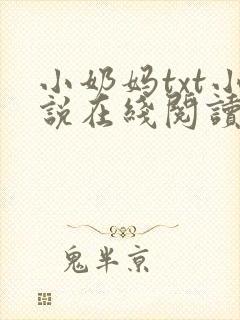 小奶妈txt小
说在綫閱讀
鬼半京